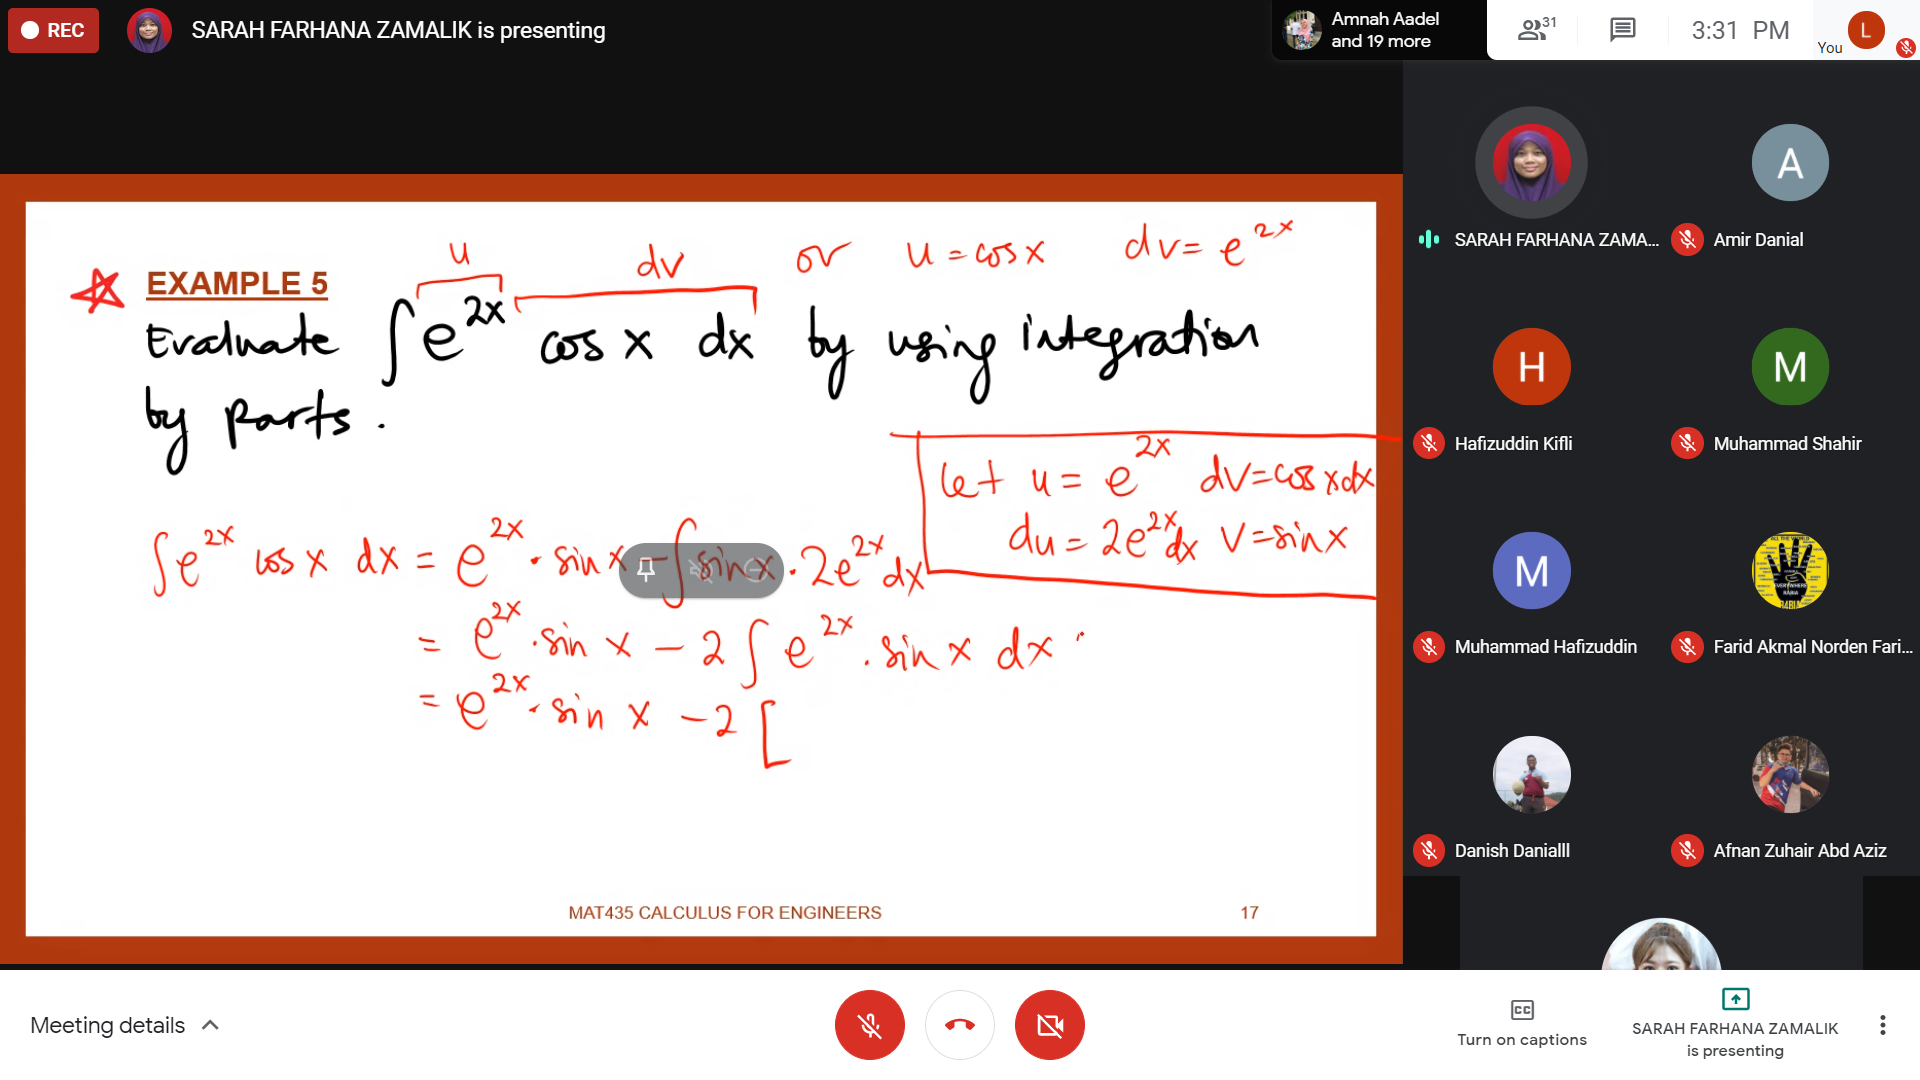 REC
SARAH FARHANA ZAMALIK is presenting
Amnah Aadel
and 19 more
31
3:31 PM
You
L
EXAMPLE 5
u
dv
or u = cos x dv = e^2x
Evaluate ∫ e^2x cos x dx by using integration
by parts.
let u = e^2x dv = cos x dx
du = 2e^2x dx v = sin x
∫ e^2x cos x dx = e^2x · sin x − ∫ sin x · 2e^2x dx
= e^2x · sin x − 2 ∫ e^2x · sin x dx
= e^2x · sin x − 2 [
MAT435 CALCULUS FOR ENGINEERS
17
SARAH FARHANA ZAMA...
A
Amir Danial
H
Hafizuddin Kifli
M
Muhammad Shahir
M
Muhammad Hafizuddin
Farid Akmal Norden Fari...
Danish Danialll
Afnan Zuhair Abd Aziz
Meeting details
CC
Turn on captions
SARAH FARHANA ZAMALIK
is presenting